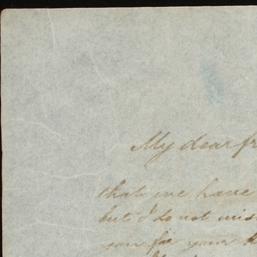 My dear fr
that we have
but I do not mis
you for your k